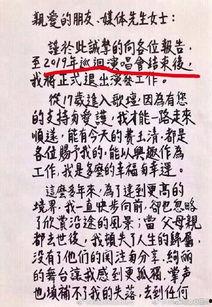 親愛的朋友、媒体先生女士:
謹於此誠摯的向各位報告,
至2019年巡迴演唱會結束後,
我將正式退出演藝工作。
從17歲進入歌壇,因為有您
的支持与愛護,我才能一路走來
順遂,能有今天的費玉清,都是
各位賜予我的,能以興趣作為
工作,我是多麼的幸福与幸運。
這麼多年來,為了達到更高的
境界,我一直快步向前,卻也忽略
了欣賞沿途的風景;當父母親
都去世後,我頓失了人生的歸屬,
沒有了他們的関注与分享,絢麗
的舞台讓我感到更孤獨,掌声
也填補不了我的失落,去到任何